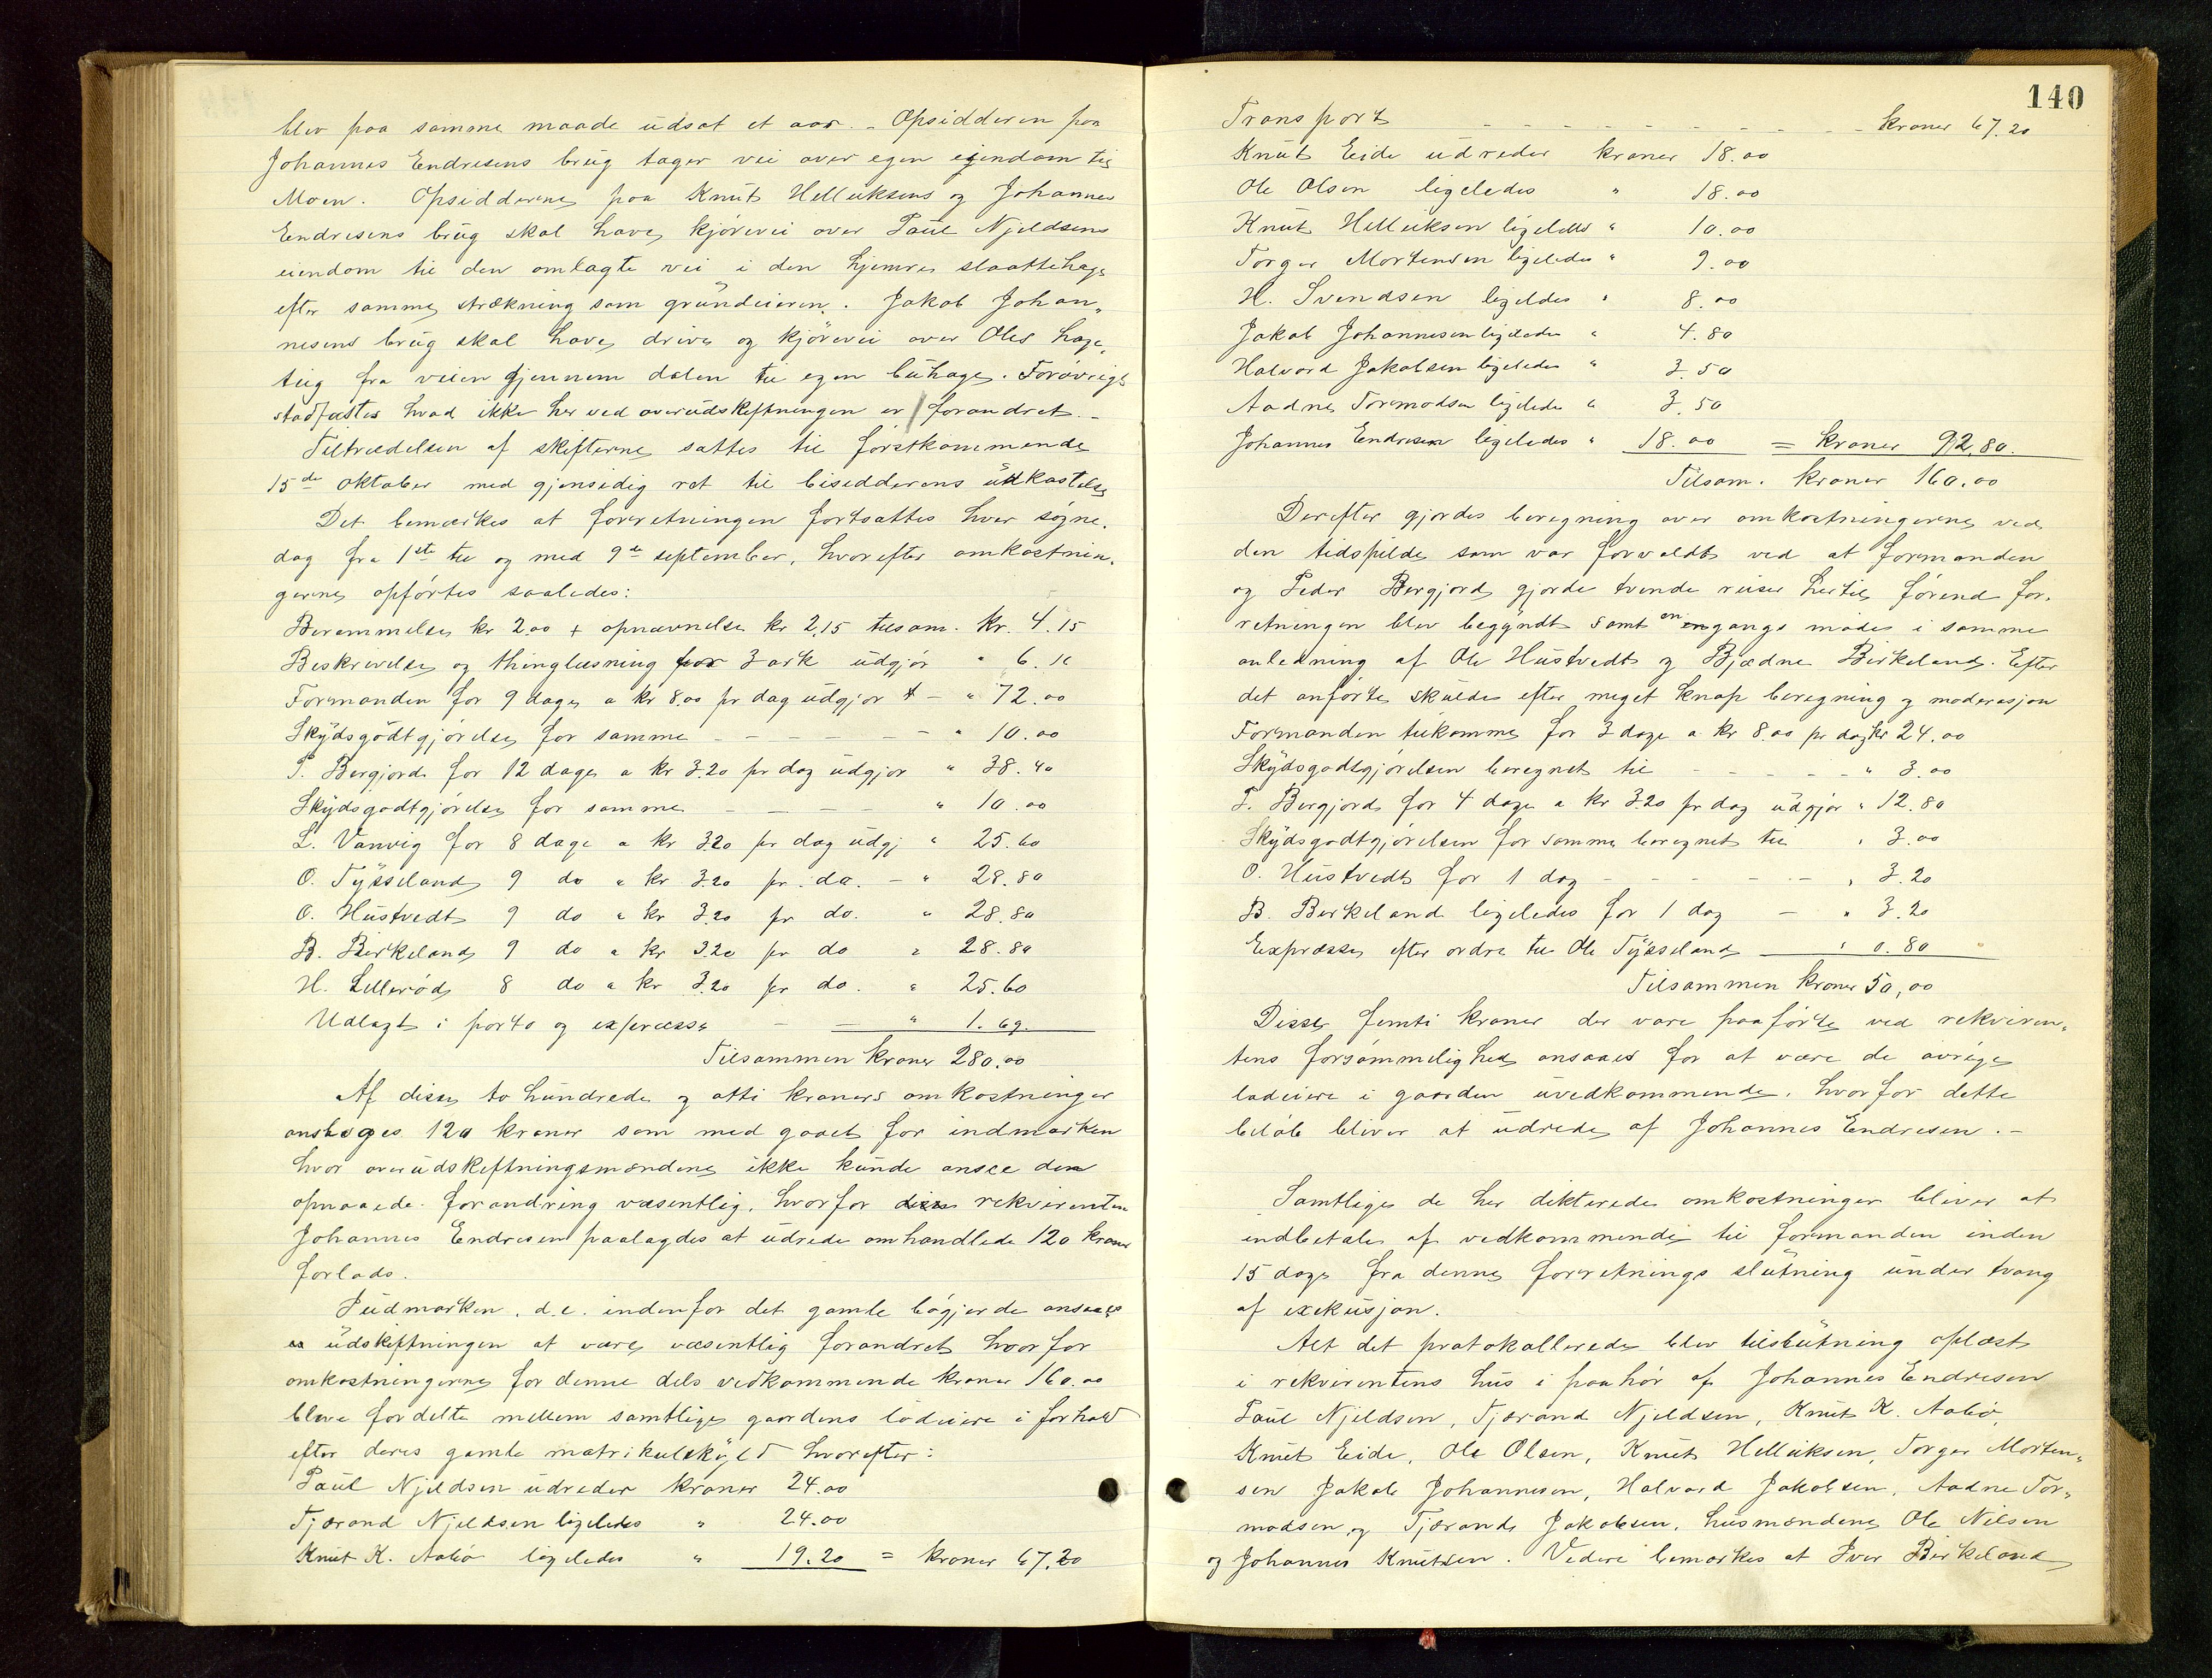 blev paa samme maade udsat et aar. - Opsidderen paa
Johannes Endresens brug tager vei over egen eiendom til
Moen. Opsidderne paa Knut Helliksens og Johannes
Endresens brug skal have kjørevei over Paul Njeldsens
eiendom til den omlagte vei i den hjemre slaattehage
efter samme strækning som grundeieren. Jakob Johan„
nesens brug skal have drive og kjørevei over Oles hage„
teig fra veien gjennem dalen til egen buhage. Forøvrigt
stadfæstes hvad ikke her ved overudskiftningen er forandret. -
Tiltrædelsen af skifterne sattes til førstkommende
15de oktober med gjensidig ret til bisidderens udkastelse
Det bemærkes at forretningen fortsattes hver søgne„
dag fra 1ste til og med 9de september, hvorefter omkostnin„
gerne opførtes saaledes:
Berammelse kr 2.00 + opnævnelse kr 2,15 tilsam. Kr. 4.15
Beskrivelse og thinglæsning for 3 ark udgjør " 6.16
Formanden for 9 dage a kr 8.00 pr dag udgjør - " 72.00
Skydsgodtgjørelse for samme - - - - - - " 10.00
P. Bergjord for 12 dage a kr 3.20 pr dag udgjør " 38.40
Skydsgodtgjørelse for samme - - - - " 10.00
L. Vanvig for 8 dage a kr 3.20 pr dag udgj " 25.60
O. Tysseland 9 do a kr 3.20 pr. do. - " 28.80
O. Hustvedt 9 do a kr 3.20 pr do. " 28.80
B. Birkeland 9 do a kr 3.20 pr do " 28.80
H. Lillerød 8 do a kr 3.20 pr do. " 25.60
Udlagt i porto og expresse - - " 1.69
Tilsammen kroner 280.00
Af disse to hundrede og otti kroners omkostninger
ansloges 120 kroner som med gaaet for indmarken
hvor overudskiftningsmændene ikke kunde ansee den
opnaaede forandring væsentlig, hvorfor rekvirenten
Johannes Endresen paalagdes at udrede omhandlede 120 kroner
forlods.
Indmarken, d.e. indenfor det gamle bøgjerde ansaaes
udskiftningen at være væsentlig forandret hvorfor
omkostningerne for denne dels vedkommende kroner 160.00
bleve fordelte mellem samtlige gaardens lodeiere i forhold
efter deres gamle matrikulskyld hvorefter:
Paul Njeldsen udreder kroner 24.00
Tjærand Njeldsen ligeledes " 24.00
Knut K. Aabø ligeledes " 19.20 = kroner 67.20
140
Transport - - - - - - - - - - kroner 67.20
Knut Eide udreder kroner 18.00
Ole Olsen ligeledes " 18.00
Knut Helliksen ligeledes " 10.00
Torger Mortensen ligeledes " 9.00
H. Svendsen ligeledes " 8.00
Jakob Johannesen ligeledes " 4.80
Halvord Jakobsen ligeledes " 3.50
Aadne Tormodsen ligeledes " 3.50
Johannes Endresen ligeledes " 18.00 = kroner 92.80.
Tilsam. kroner 160.00
Derefter gjordes beregning over omkostningerne ved
den tidspilde som var forvoldt ved at formanden
og Peder Bergjord gjorde tvende reiser hertil førend for„
retningen blev begyndt samt en gangs møde i samme
anledning af Ole Hustvedt og Bjødne Birkeland. Efter
det anførte skulde efter meget knap beregning og moderasjon
Formanden tilkomme for 3 dage a kr 8.00 pr dag kr 24.00
Skydsgodtgjørelsen beregnet til - - - - - " 3.00
P. Bergjord for 4 dage a kr 3.20 pr dag udgjør " 12.80
Skydsgodtgjørelsen for samme beregnet til " 3.00
O. Hustvedt for 1 dag - - - - - - " 3.20
B. Birkeland ligeledes for 1 dag - " 3.20
Expresse efter ordre til Ole Tysseland " 0.80
Tilsammen kroner 50,00
Disse femti kroner der vare paaførte ved rekviren„
tens forsømmelighed ansaaes for at være de øvrige
lodeiere i gaarden uvedkommende, hvorfor dette
beløb bliver at udrede af Johannes Endresen. -
Samtlige de her dikterede omkostninger bliver at
indbetale af vedkommende til formanden inden
15 dage fra denne forretnings slutning under tvang
af exekusjon.
Alt det protokollerede blev tilslutning oplæst
i rekvirentens hus i paahør af Johannes Endresen
Paul Njeldsen, Tjærand Njeldsen, Knut K. Aabø,
Knut Eide, Ole Olsen, Knut Helliksen, Torger Morten„
sen Jakob Johannesen, Halvord Jakobsen, Aadne Tor„
modsen, og Tjærand Jakobsen, husmændene Ole Nilsen
og Johannes Knutsen. Videre bemærkes at Iver Birkeland